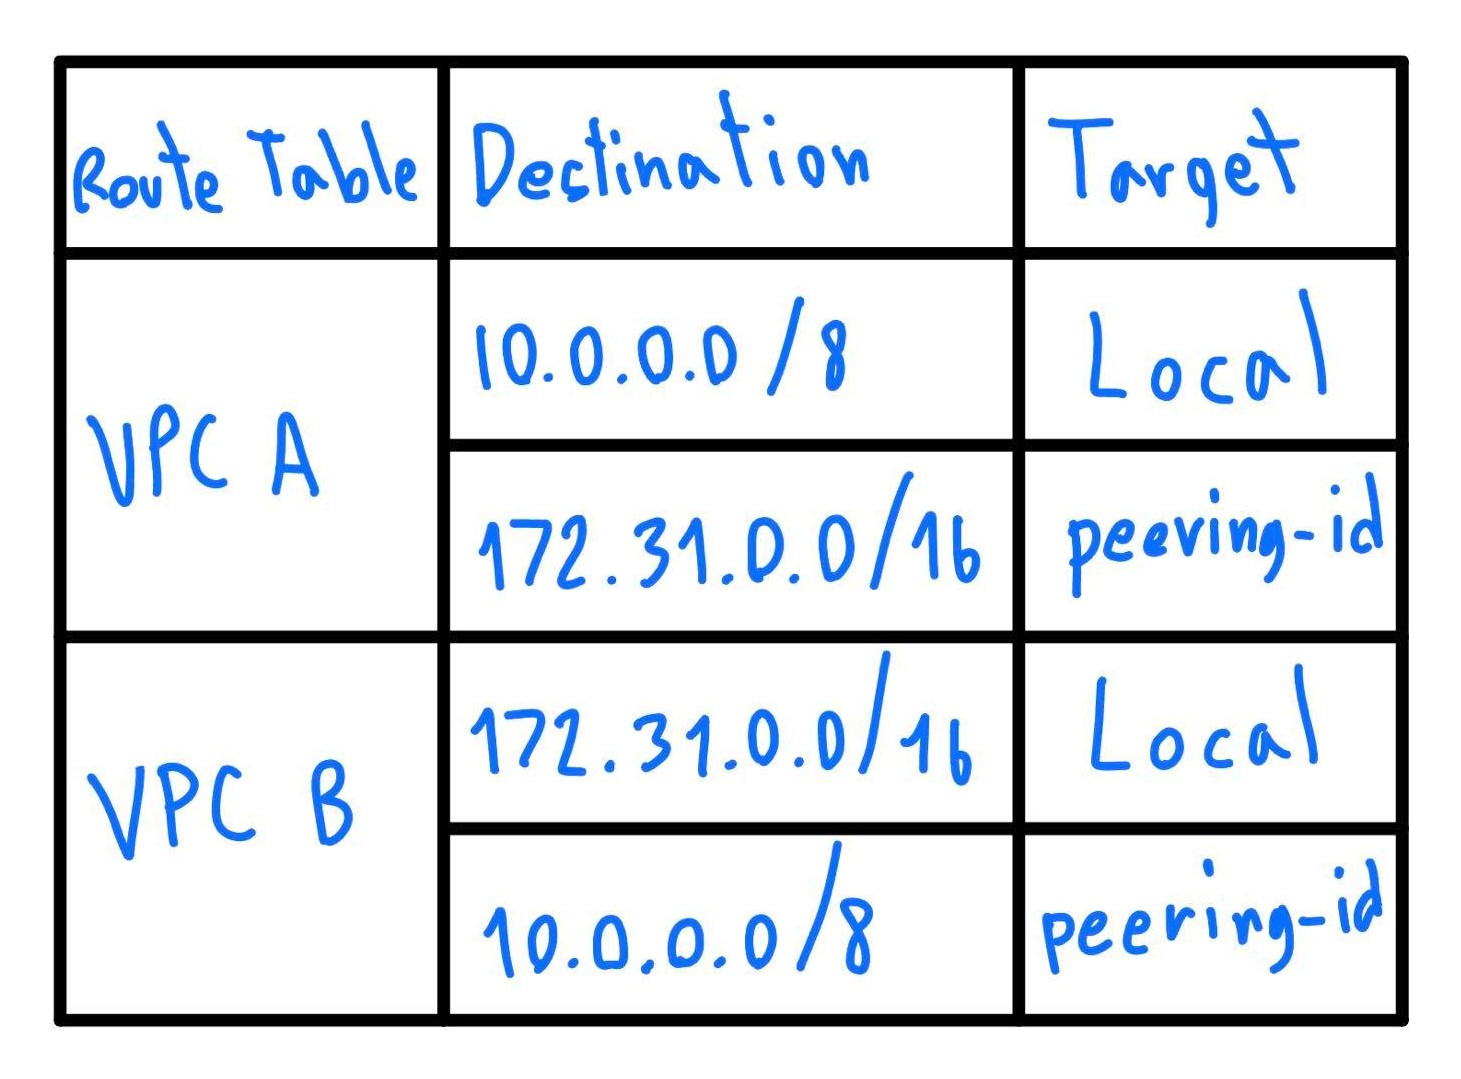 Route Table Destination Target
VPC A
10.0.0.0/8 Local
172.31.0.0/16 peering-id
VPC B
172.31.0.0/16 Local
10.0.0.0/8 peering-id